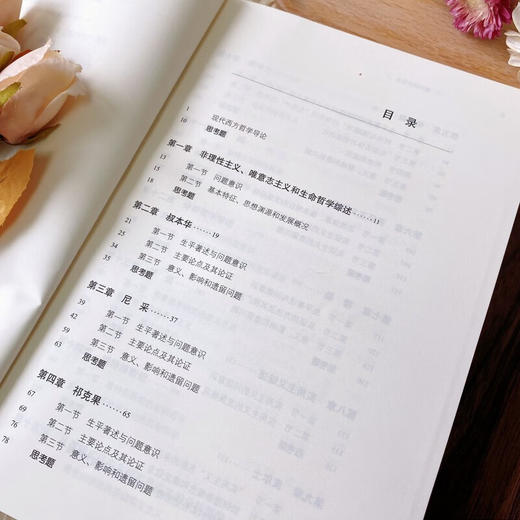 目 录
1 现代西方哲学导论
10 思考题
第一章 非理性主义、唯意志主义和生命哲学综述……11
13 第一节 问题意识
15 第二节 基本特征、思想渊源和发展概况
18 思考题
第二章 叔本华……19
21 第一节 生平著述与问题意识
25 第二节 主要论点及其论证
34 第三节 意义、影响和遗留问题
35 思考题
第三章 尼 采……37
39 第一节 生平著述与问题意识
42 第二节 主要论点及其论证
第三节 意义、影响和遗留问题
63 思考题
第四章 祁克果……65
67 第一节 生平著述与问题意识
第二节 主要论点及其论证
第三节 意义、影响和遗留问题
78 思考题